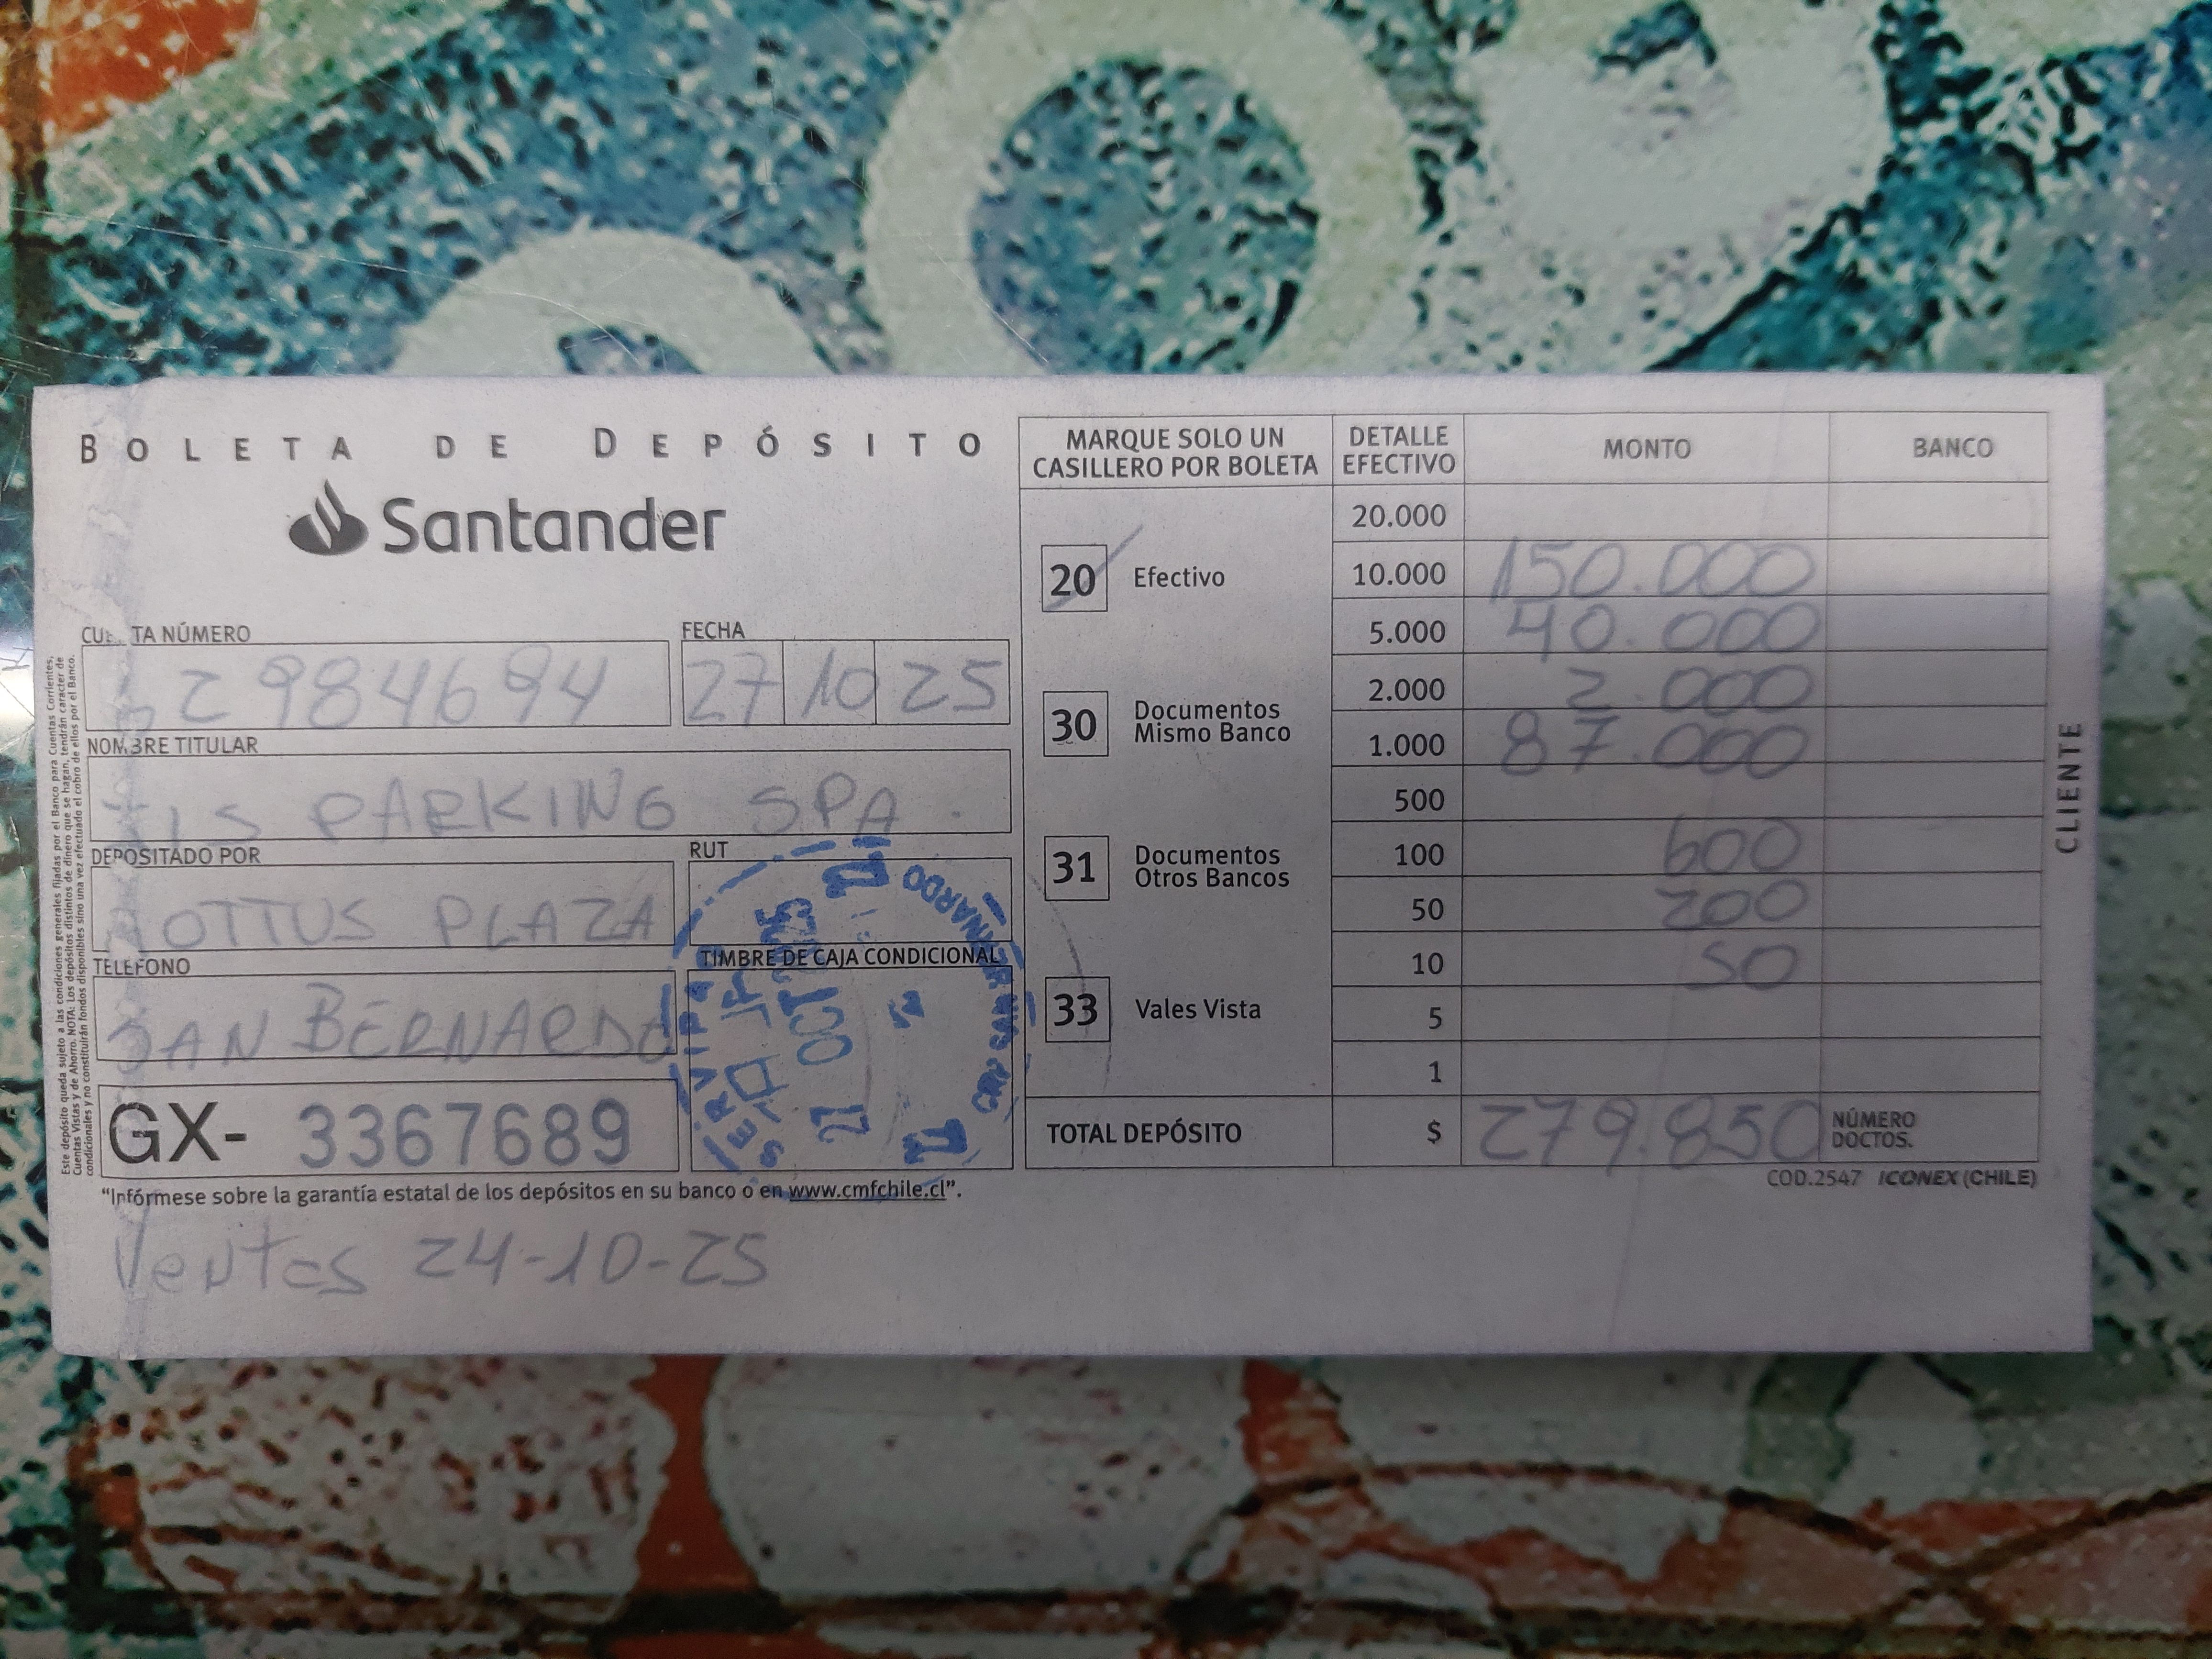 BOLETA DE DEPÓSITO
Santander
CUENTA NÚMERO
2984694
FECHA
27 10 25
NOMBRE TITULAR
IS PARKING SPA.
DEPOSITADO POR
TOTTUS PLAZA
RUT
TELÉFONO
SAN BERNARDO
TIMBRE DE CAJA CONDICIONAL
SERVIPAG
27 OCT 2025
GX- 3367689
"Infórmese sobre la garantía estatal de los depósitos en su banco o en www.cmfchile.cl".
Ventas 24-10-25
Este depósito queda sujeto a las condiciones generales fijadas por el Banco para Cuentas Corrientes,
Cuentas Vistas y de Ahorro. NOTA: Los depósitos distintos de dinero que se hagan, tendrán caracter de
condicionales y no constituirán fondos disponibles sino una vez efectuado el cobro de ellos por el Banco.
MARQUE SOLO UN
CASILLERO POR BOLETA
20 Efectivo
30 Documentos
Mismo Banco
31 Documentos
Otros Bancos
33 Vales Vista
DETALLE
EFECTIVO MONTO BANCO
20.000
10.000 150.000
5.000 40.000
2.000 2.000
1.000 87.000
500
100 600
50 200
10 50
5
1
TOTAL DEPÓSITO $ 279.850 NÚMERO
DOCTOS.
COD.2547 ICONEX (CHILE)
CLIENTE